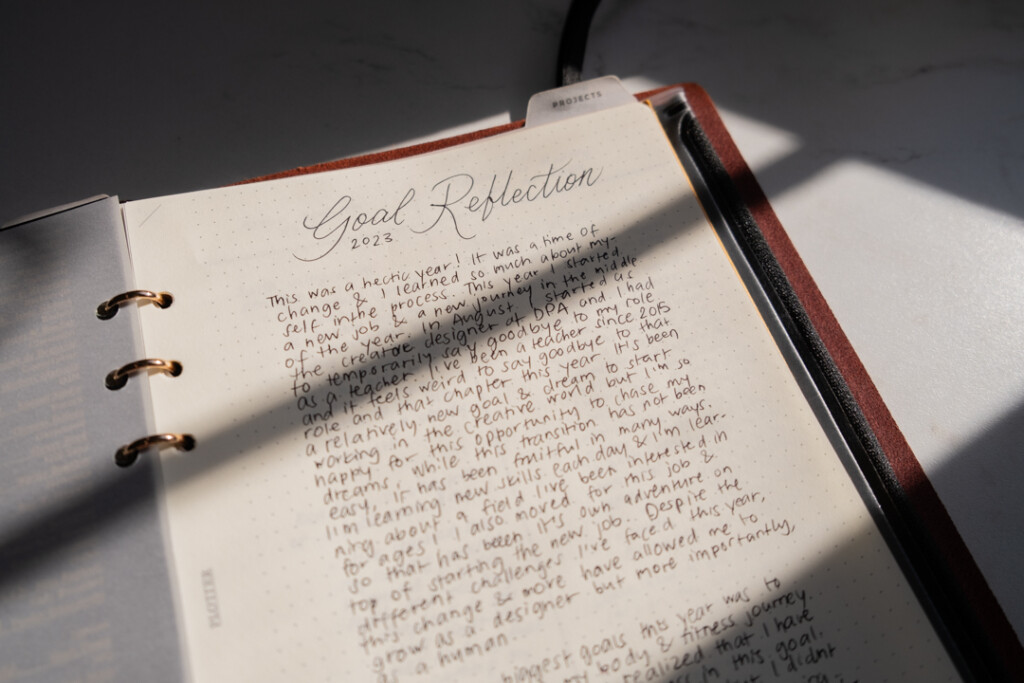 PROJECTS
Goal Reflection
2023
This was a hectic year! It was a time of
change & I learned so much about my-
self in the process. This year I started
a new job & a new journey in the middle
of the year. In August, I started as
the creative designer at DPA and I had
to temporarily say goodbye to my role
as a teacher. I've been a teacher since 2015
and it feels weird to say goodbye to that
role and that chapter this year. It's been
a relatively new goal & dream to start
working in the creative world but I'm so
happy for this opportunity to chase my
dreams. While this transition has not been
easy, it has been fruitful in many ways.
I'm learning new skills each day & I'm lear-
ning about a field I've been interested in
for ages! I also moved for this job &
so that has been it's own adventure on
top of starting the new job. Despite the
different challenges I've faced this year,
this change & more have allowed me to
grow as a designer but more importantly,
a human.
biggest goals this year was to
my body & fitness journey.
realized that I have
in this goal.
I didn't
PLOTTER